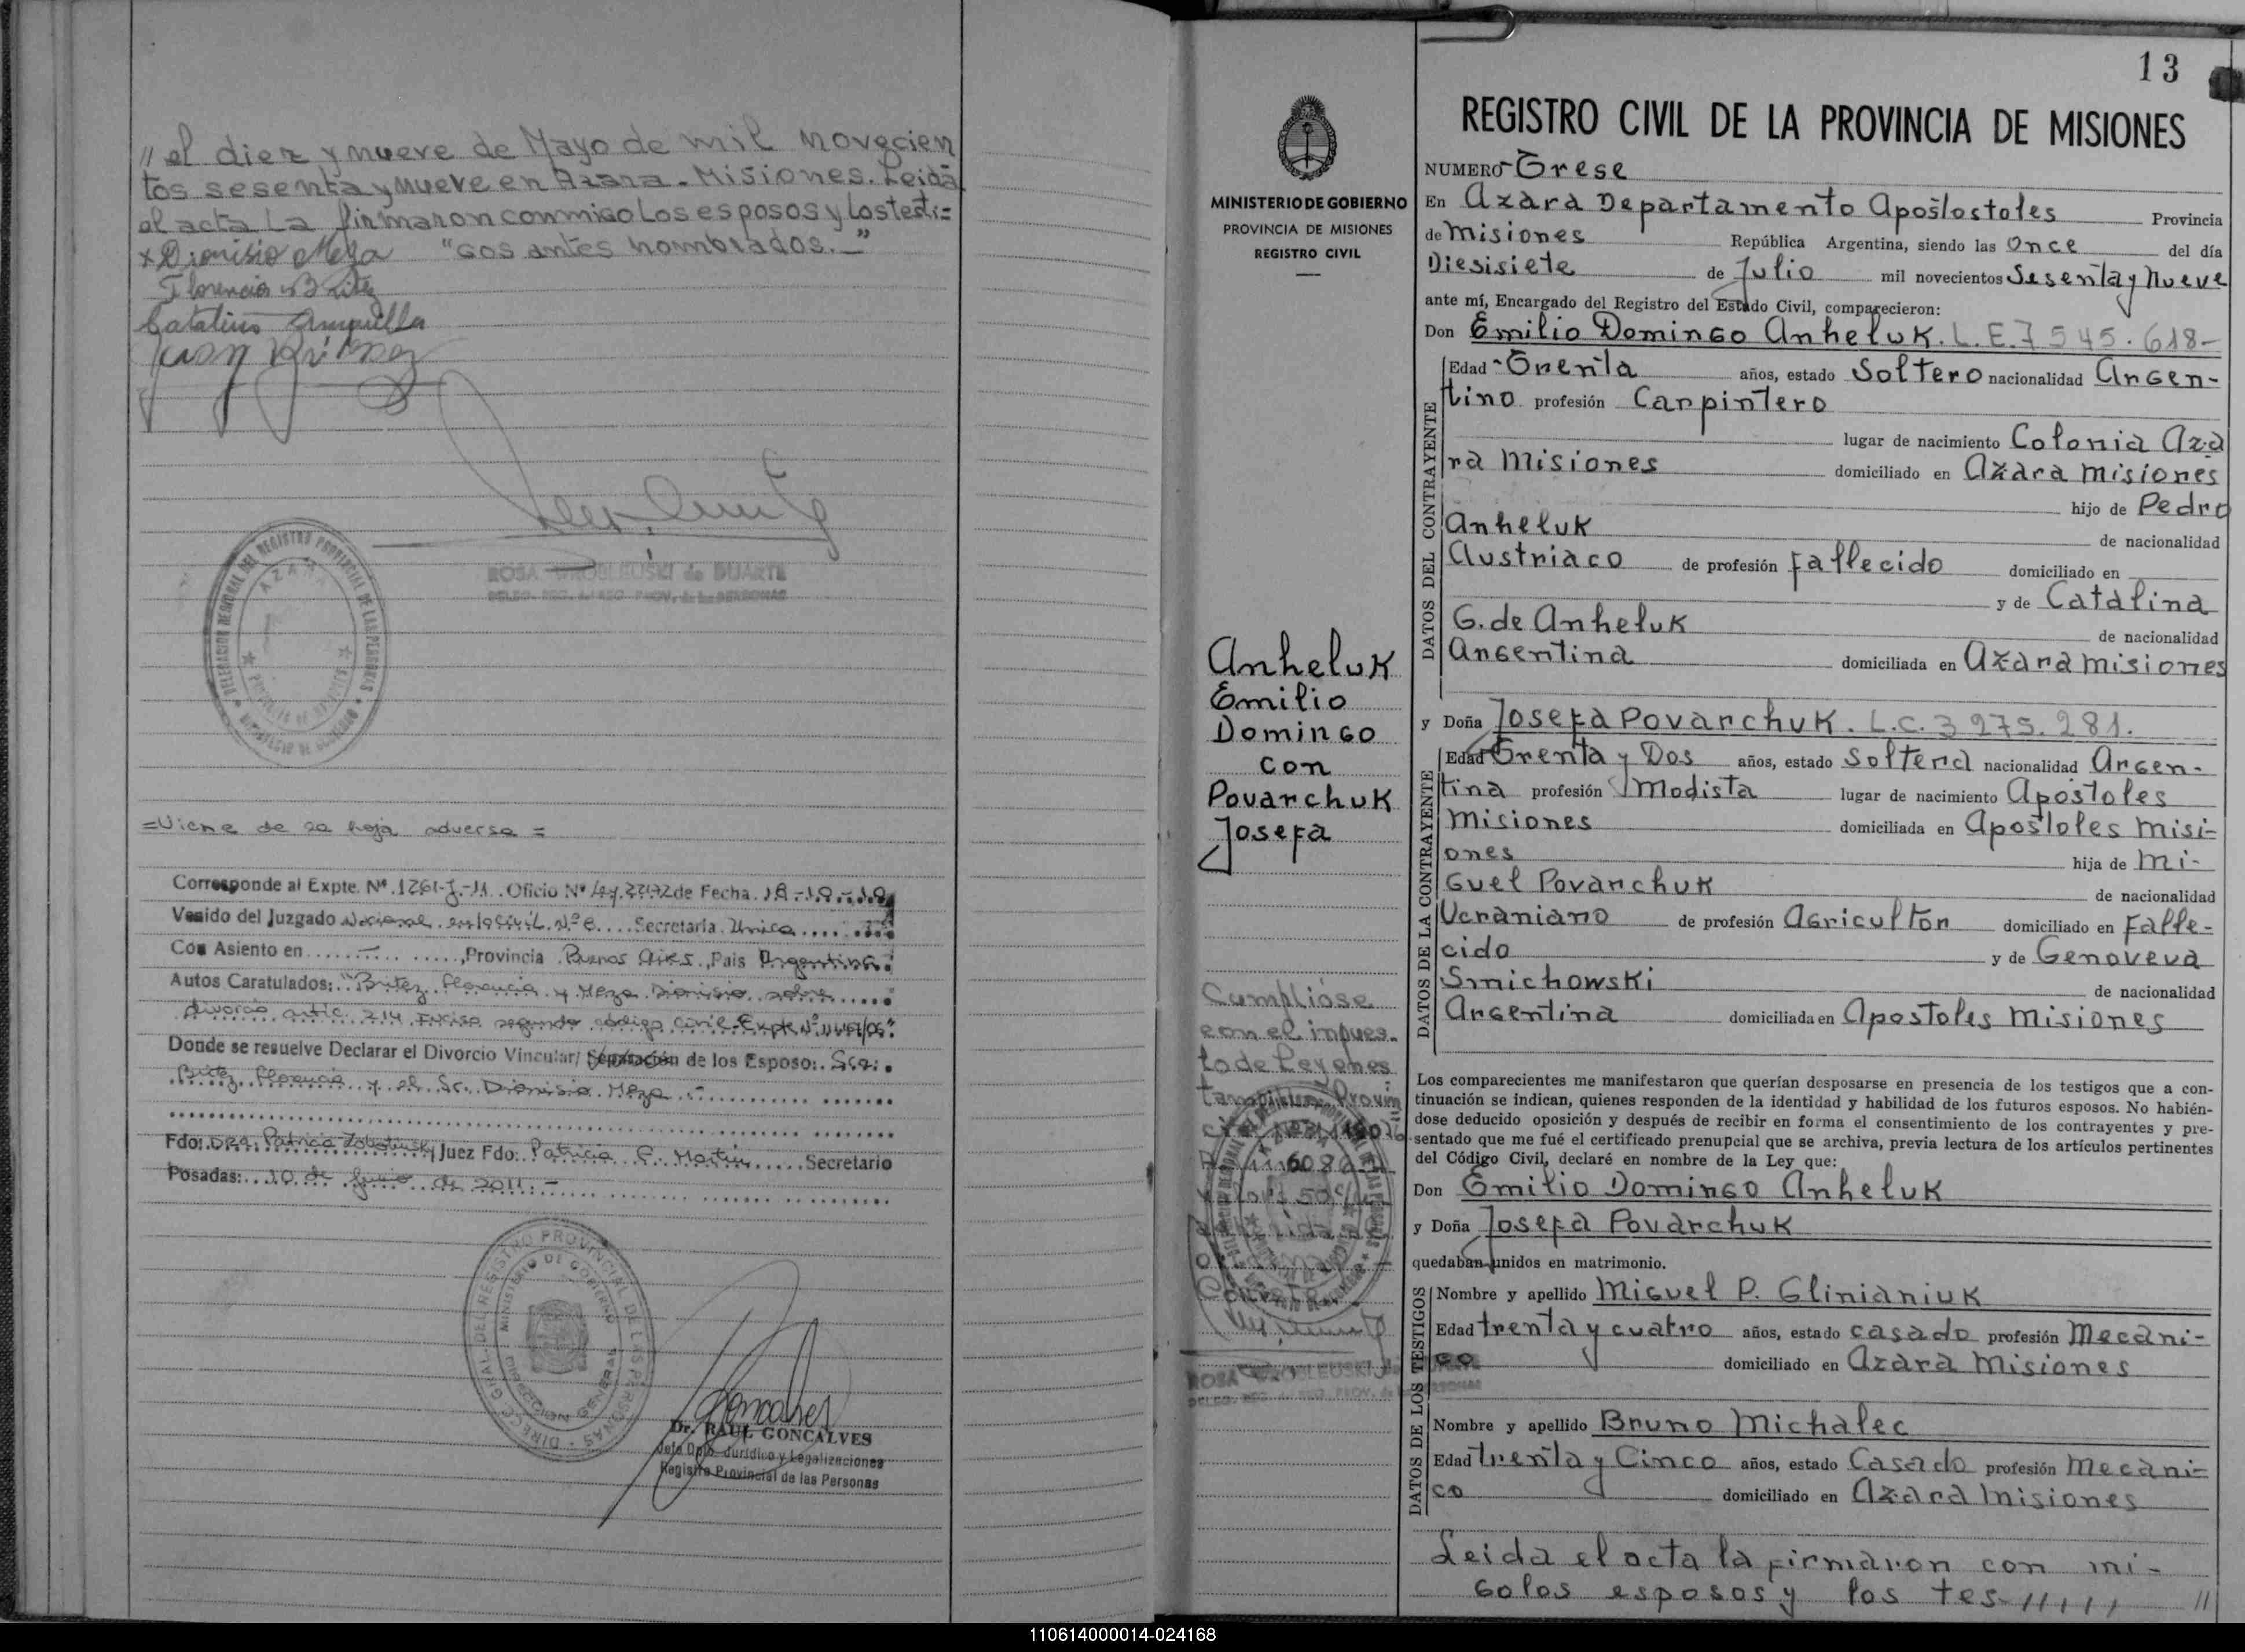 " el diez y nueve de Mayo de mil novecien
tos sesenta y nueve en Azara - Misiones. Leida
el acta La firmaron conmigo Los esposos y Los testi=
x Dionisio Meza "Gos antes nombrados.-"
Florencia Britez
Catalino
Juan
DELEGACION REGIONAL DEL REGISTRO PROVINCIAL DE LAS PERSONAS
AZARA
ROSA WROBLEUSKI de DUARTE
DELEG. REG. del REG. PROV. de las PERSONAS
=Viene de la hoja adversa =
Corresponde al Expte. Nº 1261-J-11 Oficio Nº Ley 22172 de Fecha 18-10-10
Venido del Juzgado Nacional en lo Civil Nº 8 Secretaría Unica
Con Asiento en - , Provincia Buenos Aires, Pais Argentina
Autos Caratulados: "Britez Florencia y Meza Dionisio sobre
divorcio artic. 214 Inciso segundo codigo civil - Expte Nº
Donde se resuelve Declarar el Divorcio Vincular/ Separación de los Esposo: Sra.
Britez Florencia y el Sr. Dionisio Meza
Fdo: DRA. Patricia Juez Fdo: Patricia Martin Secretario
Posadas: 10 de Junio de 2011.-
DIREC. GRAL. DEL REGISTRO PROVINCIAL DE LAS PERSONAS
MINISTERIO DE GOBIERNO
DIRECCION GENERAL
Dr. RAUL GONCALVES
Jefe Dpto. Jurídico y Legalizaciones
Registro Provincial de las Personas
13
MINISTERIO DE GOBIERNO
PROVINCIA DE MISIONES
REGISTRO CIVIL
Anheluk
Emilio
Domingo
con
Povarchuk
Josefa
Cumplióse
con el inpues-
to de Leyenes
ROSA WROBLEUSKI de DUARTE
DELEG. REG. del REG. PROV. de las PERSONAS
REGISTRO CIVIL DE LA PROVINCIA DE MISIONES
NUMERO - Trese
En Azara Departamento Apostostoles Provincia
de Misiones República Argentina, siendo las Once del día
Diesisiete de Julio mil novecientos Sesenta y Nueve
ante mí, Encargado del Registro del Estado Civil, comparecieron:
Don Emilio Domingo Anheluk. L.E. 7 545.618-
DATOS DEL CONTRAYENTE
Edad - Trenta años, estado Soltero nacionalidad Argen-
tino profesión Carpintero
lugar de nacimiento Colonia Aza
ra Misiones domiciliado en Azara Misiones
hijo de Pedro
Anheluk de nacionalidad
Austriaco de profesión Fallecido domiciliado en
y de Catalina
G. de Anheluk de nacionalidad
Argentina domiciliada en Azara Misiones
y Doña Josefa Povarchuk. L.C. 3 275.281.
DATOS DE LA CONTRAYENTE
Edad Trenta y Dos años, estado Soltera nacionalidad Argen-
tina profesión Modista lugar de nacimiento Apostoles
Misiones domiciliada en Apostoles Misi-
ones hija de Mi-
guel Povarchuk de nacionalidad
Ucraniano de profesión Agricultor domiciliado en Falle-
cido y de Genoveva
Smichowski de nacionalidad
Argentina domiciliada en Apostoles Misiones
Los comparecientes me manifestaron que querían desposarse en presencia de los testigos que a con-
tinuación se indican, quienes responden de la identidad y habilidad de los futuros esposos. No habién-
dose deducido oposición y después de recibir en forma el consentimiento de los contrayentes y pre-
sentado que me fué el certificado prenupcial que se archiva, previa lectura de los artículos pertinentes
del Código Civil, declaré en nombre de la Ley que:
Don Emilio Domingo Anheluk
y Doña Josefa Povarchuk
quedaban unidos en matrimonio.
DATOS DE LOS TESTIGOS
Nombre y apellido Miguel P. Glinianiuk
Edad trenta y cuatro años, estado casado profesión Mecani-
co domiciliado en Azara Misiones
Nombre y apellido Bruno Michalec
Edad trenta y Cinco años, estado Casado profesión Mecani-
co domiciliado en Azara Misiones
Leida el acta la firmaron con mi-
go los esposos y los tes-,,,,, "
110614000014-024168